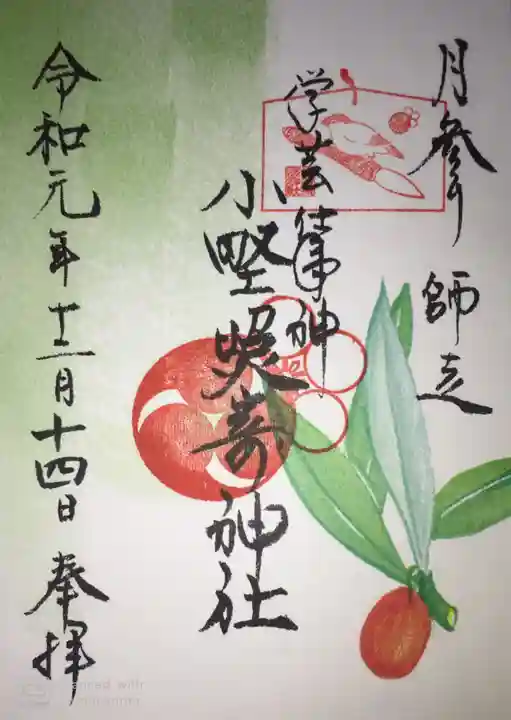 月参り 師走
学芸神
小野照嵜神社
令和元年十二月十四日 奉拝
with